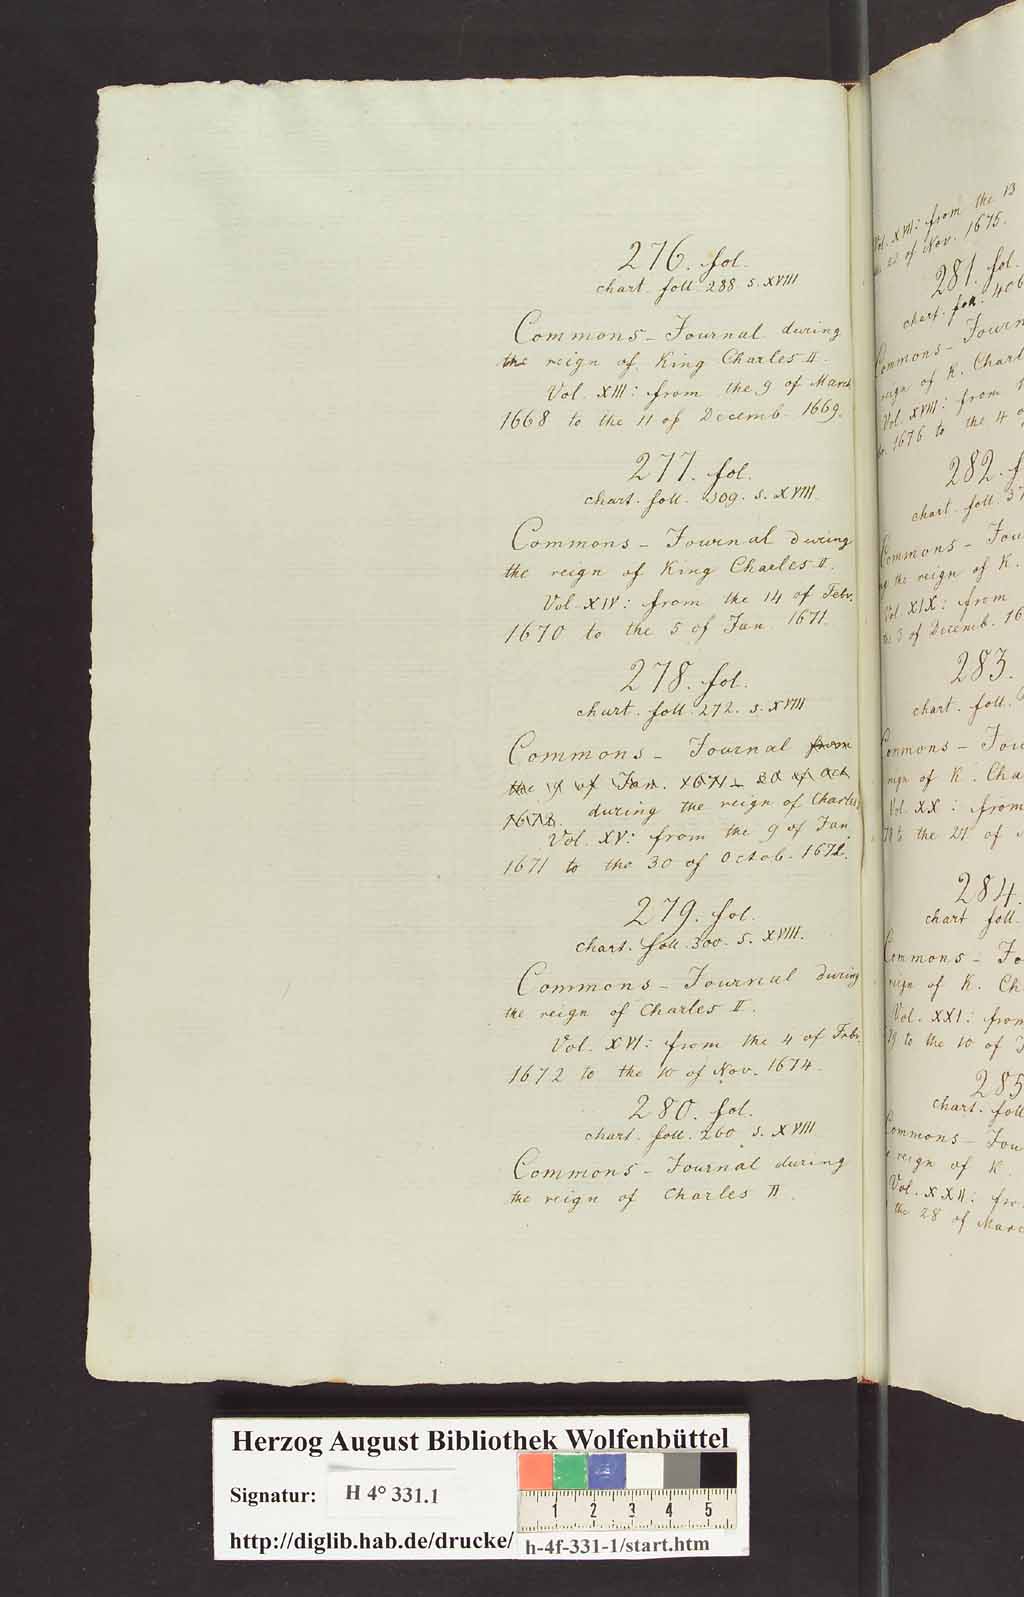 276. fol.
chart. foll. 288 s. XVIII
Commons - Journal during
the reign of King Charles II.
Vol. XIII: from the 9 of March
1668 to the 11 of Decemb. 1669.
277. fol.
chart. foll. 309. s. XVIII.
Commons - Journal during
the reign of King Charles II.
Vol. XIV: from the 14 of Febr.
1670 to the 5 of Jan. 1671.
278. fol.
chart. foll. 272. s. XVIII
Commons - Journal from
the 9 of Jan. 1671 - 30 of Oct.
1672. during the reign of Charles
Vol. XV: from the 9 of Jan
1671 to the 30 of Octob. 1672.
279. fol.
chart. foll. 300. s. XVIII.
Commons - Journal during
the reign of Charles II.
Vol. XVI: from the 4 of Febr.
1672 to the 10 of Nov. 1674.
280. fol.
chart. foll. 260. s. XVIII
Commons - Journal during
the reign of Charles II.
Vol. XVII: from the 13
of Nov. 1675.
281. fol.
chart. foll. 406
Commons - Journ
reign of K. Charl
Vol. XVIII: from
1676 to the 4
282. f
chart. foll. 37
Commons - Jou
the reign of K.
Vol. XIX: from
the 3 of Decemb. 16
283.
chart. foll.
Commons - Jou
reign of K. Cha
Vol. XX: from
the 27 of
284.
chart foll.
Commons - Jo
reign of K. Ch
Vol. XXI: from
79 to the 10 of J
285
chart. foll
Commons - Jou
reign of K.
Vol. XXII: fro
the 28 of Marc
Herzog August Bibliothek Wolfenbüttel
Signatur: H 4° 331.1
1 2 3 4 5
http://diglib.hab.de/drucke/ h-4f-331-1/start.htm